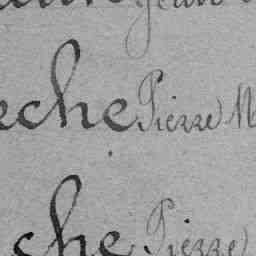 Jean
eche Pierre
che Pierre